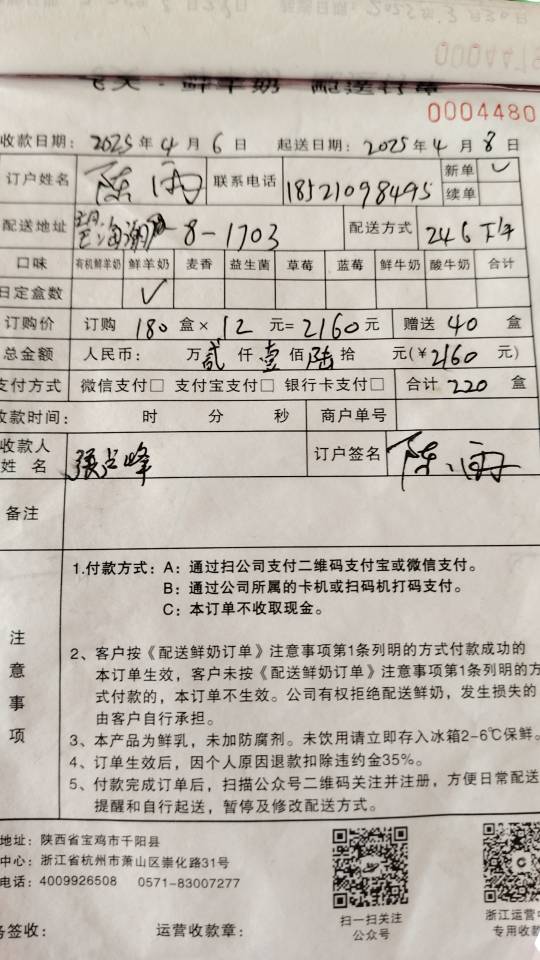 鲜羊奶 配送订单
0004480
收款日期: 2025年4月6日 起送日期: 2025年4月8日
订户姓名 陈雨 联系电话 18521098495 新单 ✓
续单
配送地址 8-1703 配送方式 246下午
口味 有机鲜羊奶 鲜羊奶 麦香 益生菌 草莓 蓝莓 鲜牛奶 酸牛奶 合计
日定盒数 ✓
订购价 订购 180 盒× 12 元= 2160 元 赠送 40 盒
总金额 人民币: 万贰仟壹佰陆拾 元(¥2160 元)
支付方式 微信支付□ 支付宝支付□ 银行卡支付□ 合计 220 盒
收款时间: 时 分 秒 商户单号
收款人姓名 張占峰 订户签名 陈雨
备注
注意事项
1.付款方式: A: 通过扫公司支付二维码支付宝或微信支付。
B: 通过公司所属的卡机或扫码机打码支付。
C: 本订单不收取现金。
2、客户按《配送鲜奶订单》注意事项第1条列明的方式付款成功的
本订单生效，客户未按《配送鲜奶订单》注意事项第1条列明的方
式付款的，本订单不生效。公司有权拒绝配送鲜奶，发生损失的
由客户自行承担。
3、本产品为鲜乳，未加防腐剂。未饮用请立即存入冰箱2-6℃保鲜。
4、订单生效后，因个人原因退款扣除违约金35%。
5、付款完成订单后，扫描公众号二维码关注并注册，方便日常配送
提醒和自行起送，暂停及修改配送方式。
地址: 陕西省宝鸡市千阳县
中心: 浙江省杭州市萧山区崇化路31号
电话: 4009926508 0571-83007277
扫一扫关注
公众号
浙江运营中
专用收款
务签收: 运营收款章: